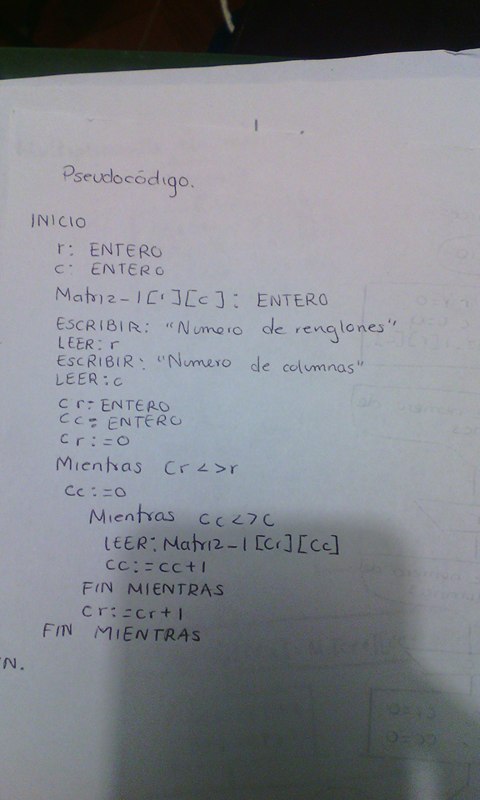 1
Pseudocódigo.
INICIO
r: ENTERO
c: ENTERO
Matriz-1[r][c]: ENTERO
ESCRIBIR: "Numero de renglones"
LEER: r
ESCRIBIR: "Numero de columnas"
LEER: c
Cr= ENTERO
Cc= ENTERO
Cr:=0
Mientras Cr<>r
Cc:=0
Mientras Cc<>C
LEER: Matriz-1[Cr][Cc]
CC:=CC+1
FIN MIENTRAS
Cr:=Cr+1
FIN MIENTRAS
N.